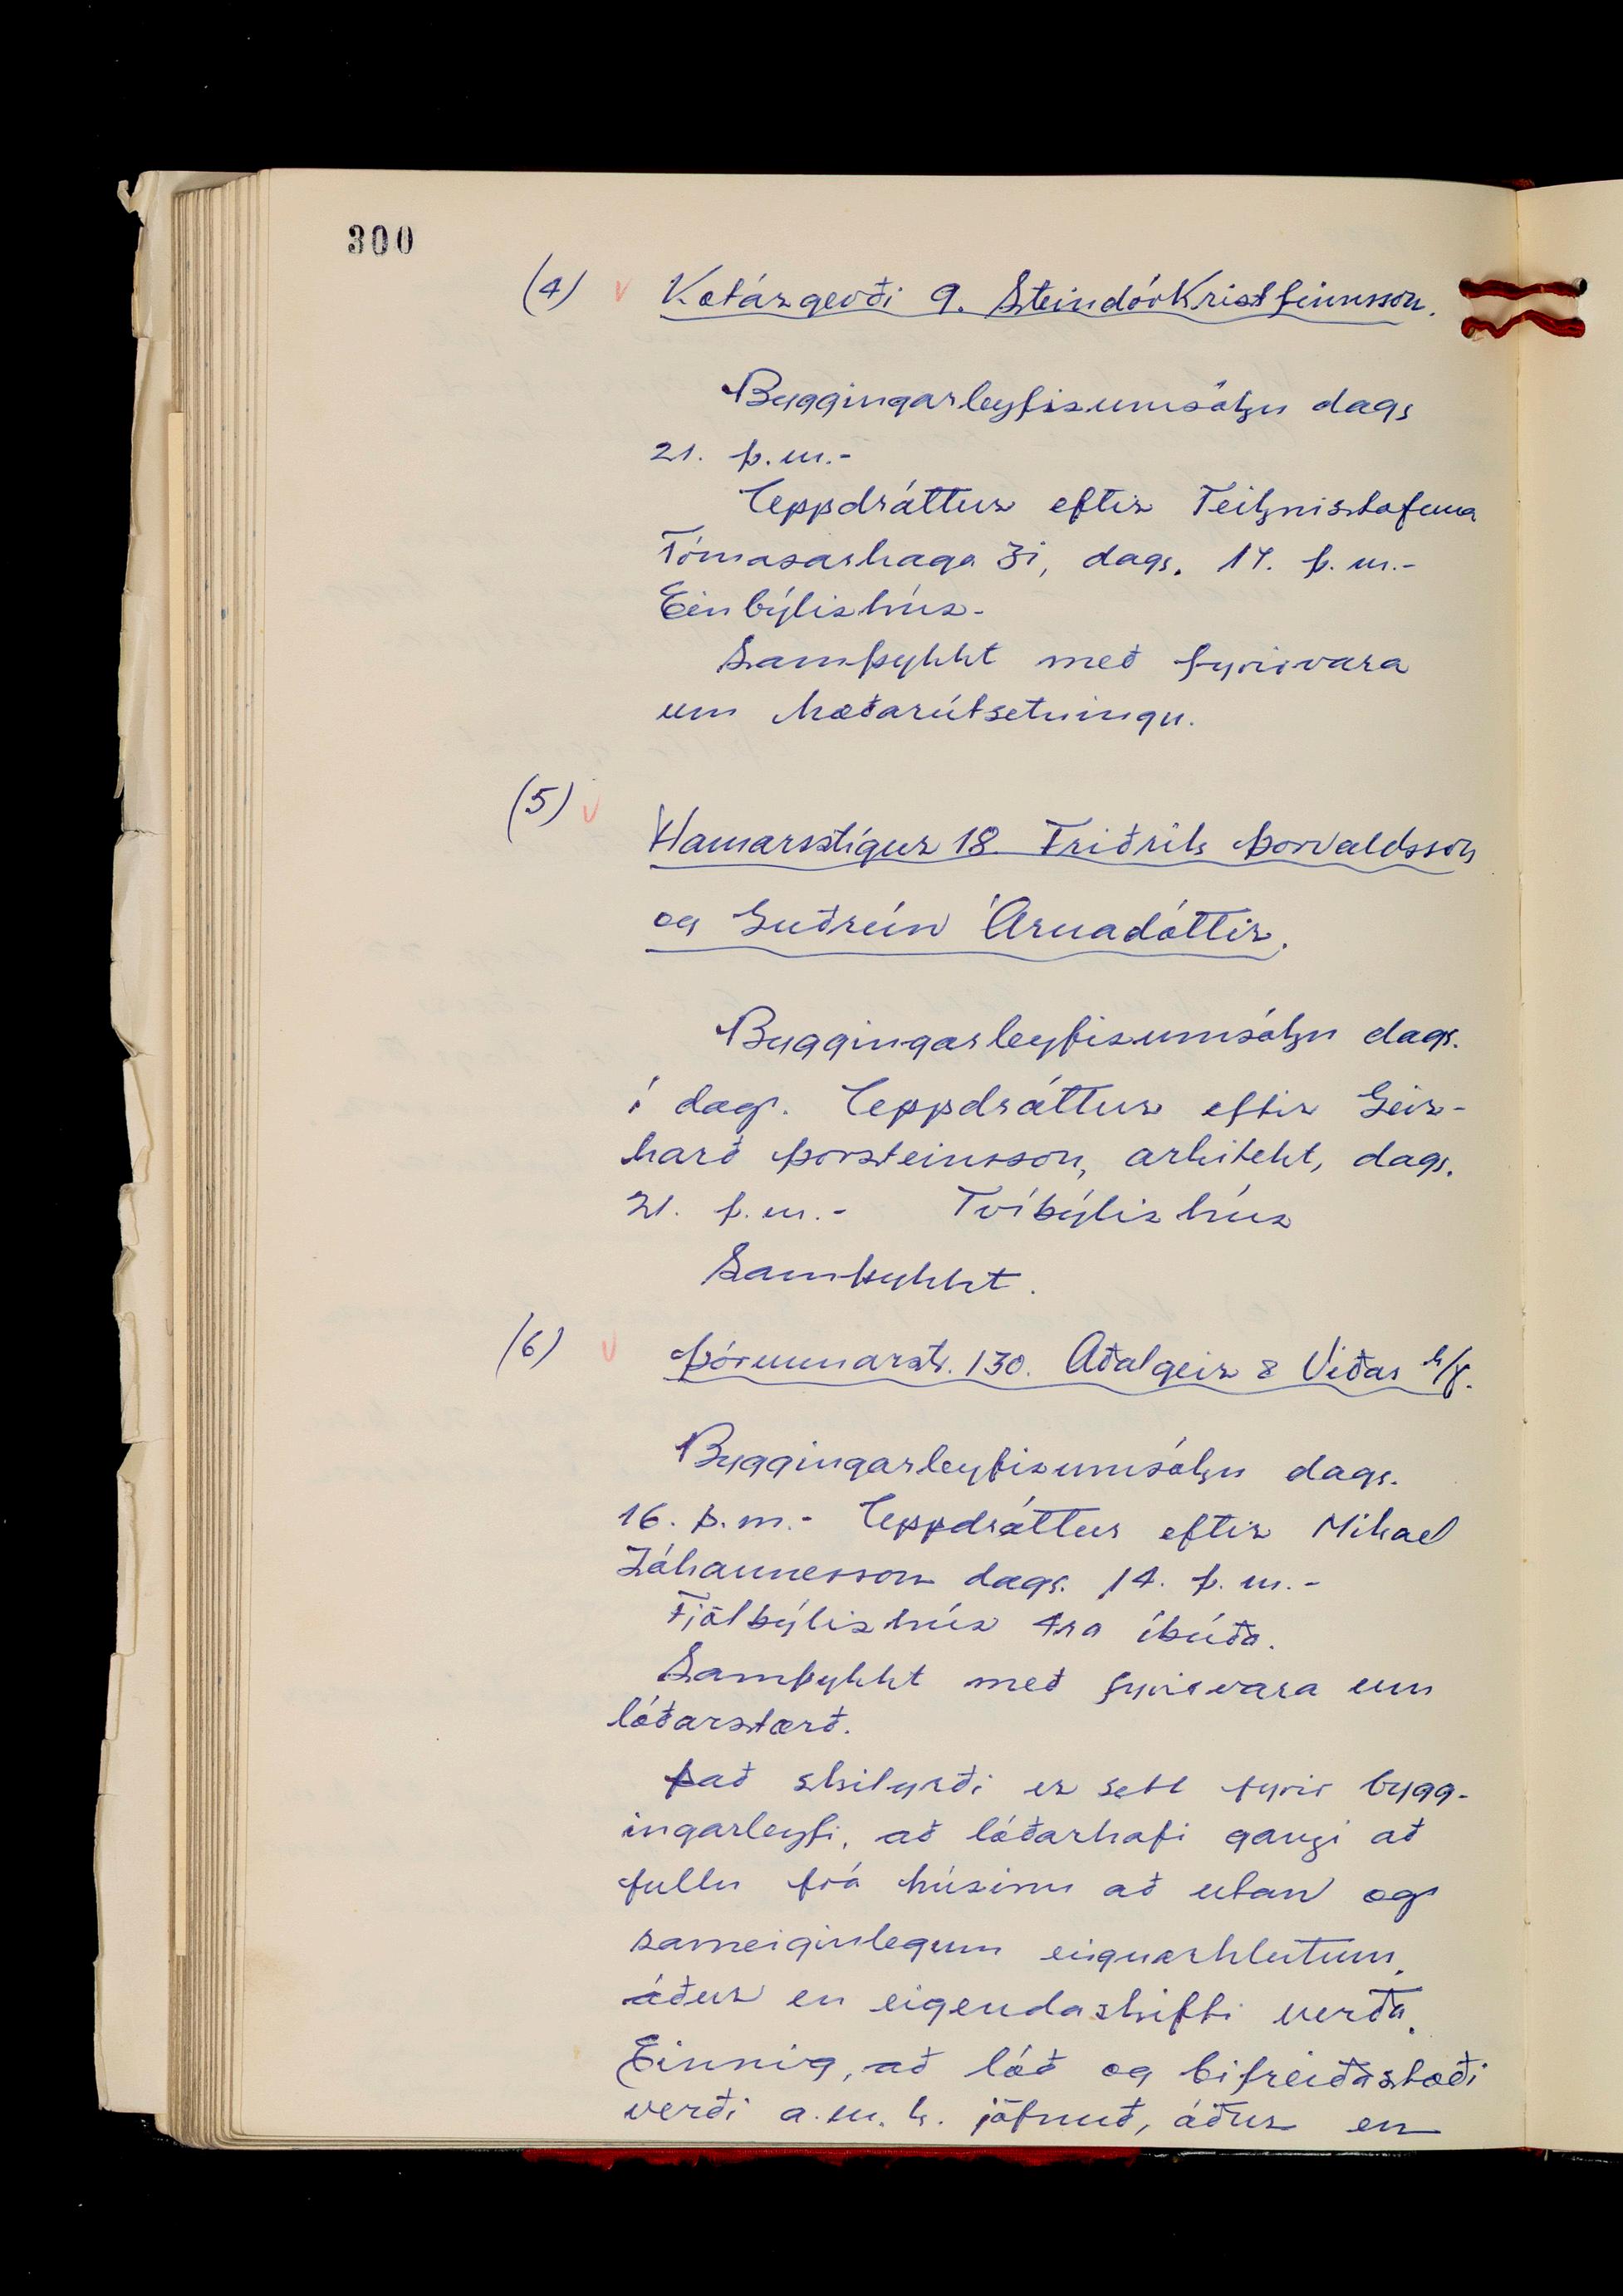 300
(4) v Kotárgerði 9. Steindór Kristfinnsson.
Byggingarleyfisumsókn dags
21. þ.m.-
Uppdráttur eftir Teiknistofuna
Tómasarhaga 31, dags. 17. þ.m.-
Einbýlishús-
Samþykkt með fyrirvara
um hæðarútsetningu.
(5) v
Hamarstígur 18. Friðrik Þorvaldsson
og Guðrún Árnadóttir.
Byggingarleyfisumsókn dags.
í dag. Uppdráttur eftir Geir-
harð Þorsteinsson, arkitekt, dags.
21. þ.m.- Tvíbýlishús
Samþykkt.
(6) v Þórunnarstr. 130. Aðalgeir & Viðar h/f.
Byggingarleyfisumsókn dags.
16. þ.m.- Uppdráttur eftir Mikael
Jóhannesson dags. 14. þ.m.-
Fjölbýlishús 4ra íbúða.
Samþykkt með fyrirvara um
lóðarstærð.
Það skilyrði er sett fyrir bygg-
ingarleyfi, að lóðarhafi gangi að
fullu frá húsinu að utan og
sameiginlegum eignarhlutum,
áður en eigendaskifti verða.
Einnig, að lóð og bifreiðastæði
verði a.m.k. jöfnuð, áður en